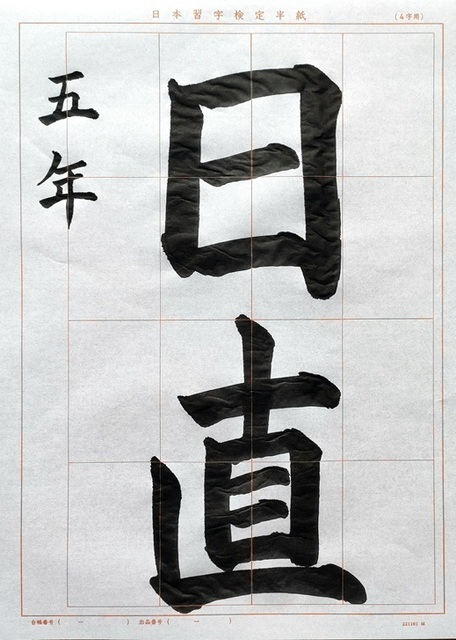 日本習字検定半紙
(4字用)
日直
五年
合格番号( ー ) 出品番号( ー )